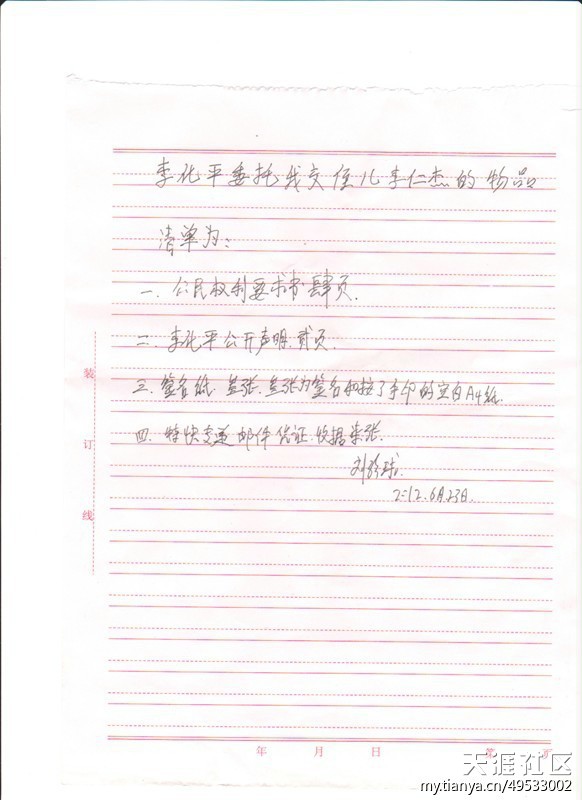 李化平委托我交侄儿李仁杰的物品
清单为：
一. 公民权利要求书.肆页.
二. 李化平公开声明.贰页.
三. 签名纸. 叁张. 叁张为签名和按了手印的空白A4纸.
四. 特快专递邮件凭证.收据柒张.
刘
二〇12.6月.23日.
装
订
线
年 月 日
第 页
天涯社区
my.tianya.cn/49533002